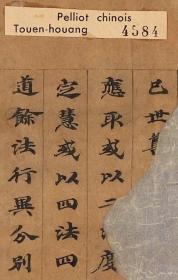 Pelliot chinois
Touen-houang 4584
已世尊
應取或以二度
定慧或以四法四
道餘法行異分別